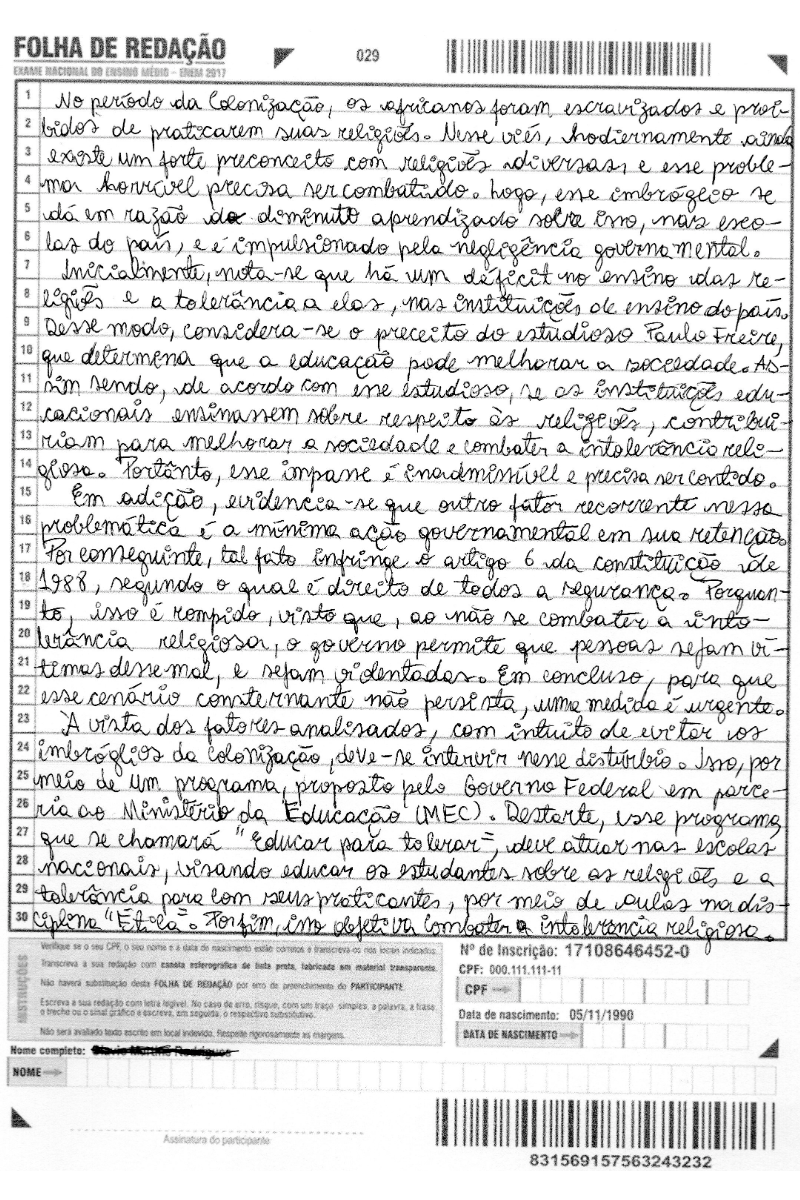 FOLHA DE REDAÇÃO
029
EXAME NACIONAL DO ENSINO MÉDIO - ENEM 2017
1 No período da Colonização, os africanos foram escravizados e proi-
2 bidos de praticarem suas religiões. Nesse viés, hodiernamente ainda
3 existe um forte preconceito com religiões diversas, e esse proble-
4 ma horrível precisa ser combatido. Logo, esse imbróglio se
5 dá em razão do diminuto aprendizado sobre isso, nas esco-
6 las do país, e é impulsionado pela negligência governamental.
7 Inicialmente, nota-se que há um déficit no ensino das re-
8 ligiões e a tolerância a elas, nas instituições de ensino do país.
9 Desse modo, considera-se o preceito do estudioso Paulo Freire,
10 que determina que a educação pode melhorar a sociedade. As-
11 sim sendo, de acordo com esse estudioso, se as instituições edu-
12 cacionais ensinassem sobre respeito às religiões, contribui-
13 riam para melhorar a sociedade e combater a intolerância reli-
14 giosa. Portânto, esse impasse é inadmissível e precisa ser contido.
15 Em adição, evidencia-se que outro fator recorrente nessa
16 problemática é a mínima ação governamental em sua retenção.
17 Por conseguinte, tal fato infringe o artigo 6 da constituição de
18 1988, segundo o qual é direito de todos a segurança. Porquan-
19 to, isso é rompido, visto que, ao não se combater a into-
20 lerância religiosa, o governo permite que pessoas sejam ví-
21 timas desse mal, e sejam violentadas. Em concluso, para que
22 esse cenário consternante não persista, uma medida é urgente.
23 À vista dos fatores analisados, com intuito de evitar os
24 imbróglios da Colonização, deve-se intervir nesse distúrbio. Isso, por
25 meio de um programa, proposto pelo Governo Federal em parce-
26 ria ao Ministério da Educação (MEC). Destarte, esse programa,
27 que se chamará "Educar para tolerar", deve atuar nas escolas
28 nacionais, visando educar os estudantes sobre as religiões, e a
29 tolerância para com seus praticantes, por meio de aulas na dis-
30 ciplina "Ética". Por fim, isso objetiva combater a intolerância religiosa.
INSTRUÇÕES
Verifique se o seu CPF, o seu nome e a data de nascimento estão corretos e transcreva-os nos locais indicados.
Transcreva a sua redação com caneta esferográfica de tinta preta, fabricada em material transparente.
Não haverá substituição desta FOLHA DE REDAÇÃO por erro de preenchimento do PARTICIPANTE.
Escreva a sua redação com letra legível. No caso de erro, risque, com um traço simples, a palavra, a frase
o trecho ou o sinal gráfico e escreva, em seguida, o respectivo substitutivo.
Não será avaliado texto escrito em local indevido. Respeite rigorosamente as margens.
Nº de Inscrição: 17108646452-0
CPF: 000.111.111-11
CPF
Data de nascimento: 05/11/1990
DATA DE NASCIMENTO
Nome completo:
NOME
Assinatura do participante
831569157563243232